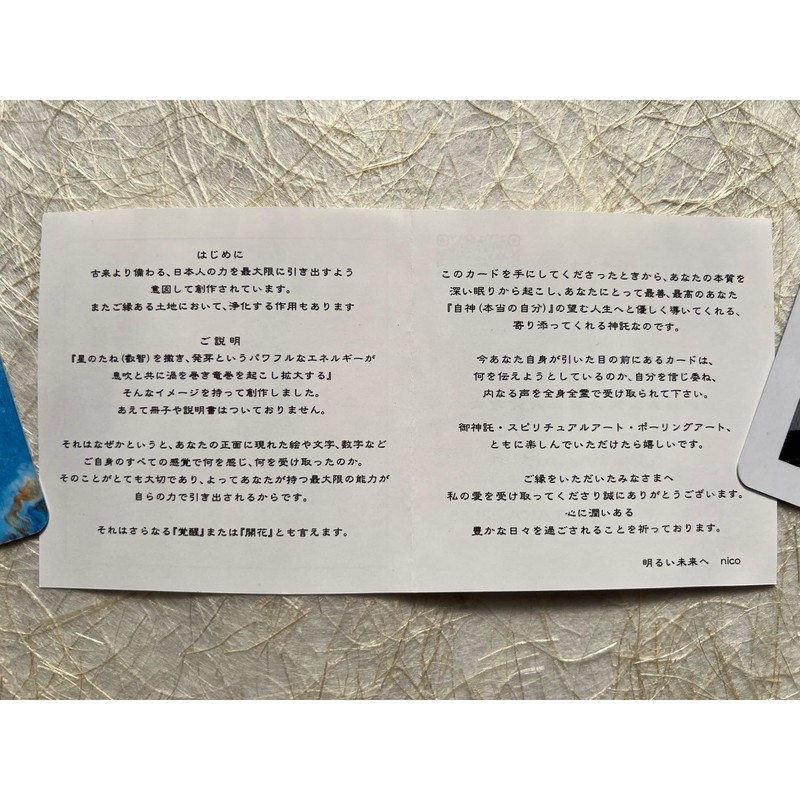 はじめに
古来より備わる、日本人の力を最大限に引き出すよう
意図して創作されています。
またご縁ある土地において、浄化する作用もあります
ご説明
『星のたね(叡智)を撒き、発芽というパワフルなエネルギーが
息吹と共に渦を巻き竜巻を起こし拡大する』
そんなイメージを持って創作しました。
あえて冊子や説明書はついておりません。
それはなぜかというと、あなたの正面に現れた絵や文字、数字など
ご自身のすべての感覚で何を感じ、何を受け取ったのか。
そのことがとても大切であり、よってあなたが持つ最大限の能力が
自らの力で引き出されるからです。
それはさらなる『覚醒』または『開花』とも言えます。
このカードを手にしてくださったときから、あなたの本質を
深い眠りから起こし、あなたにとって最善、最高のあなた
『自神(本当の自分)』の望む人生へと優しく導いてくれる、
寄り添ってくれる神託なのです。
今あなた自身が引いた目の前にあるカードは、
何を伝えようとしているのか、自分を信じ委ね、
内なる声を全身全霊で受け取られて下さい。
御神託・スピリチュアルアート・ポーリングアート、
ともに楽しんでいただけたら嬉しいです。
ご縁をいただいたみなさまへ
私の愛を受け取ってくださり誠にありがとうございます。
心に潤いある
豊かな日々を過ごされることを祈っております。
明るい未来へ nico